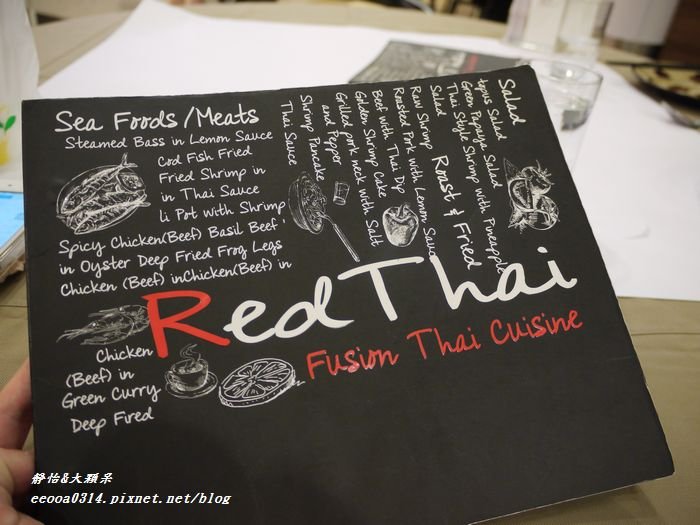 Sea Foods/Meats
Steamed Bass in Lemon Sauce
Cod Fish Fried
Fried Shrimp in
in Thai Sauce
li Pot with Shrimp
Spicy Chicken(Beef) Basil Beef
in Oyster Deep Fried Frog Legs
Chicken (Beef) inChicken(Beef) in
Chicken
(Beef) in
Green Curry
Deep Fired
Salad
Green Papaya Salad
Thai Style Shrimp with Pineapple
Roast & Fried
Salad
Raw Shrimp
Roasted Pork with Lemon Sauce
Beef with Thai Dip
Golden Shrimp Cake
Grilled pork neck with Salt
and Pepper
Shrimp Pancake
Thai Sauce
RedThai
Fusion Thai Cuisine
靜怡&大顆呆
eeooa0314.pixnet.net/blog